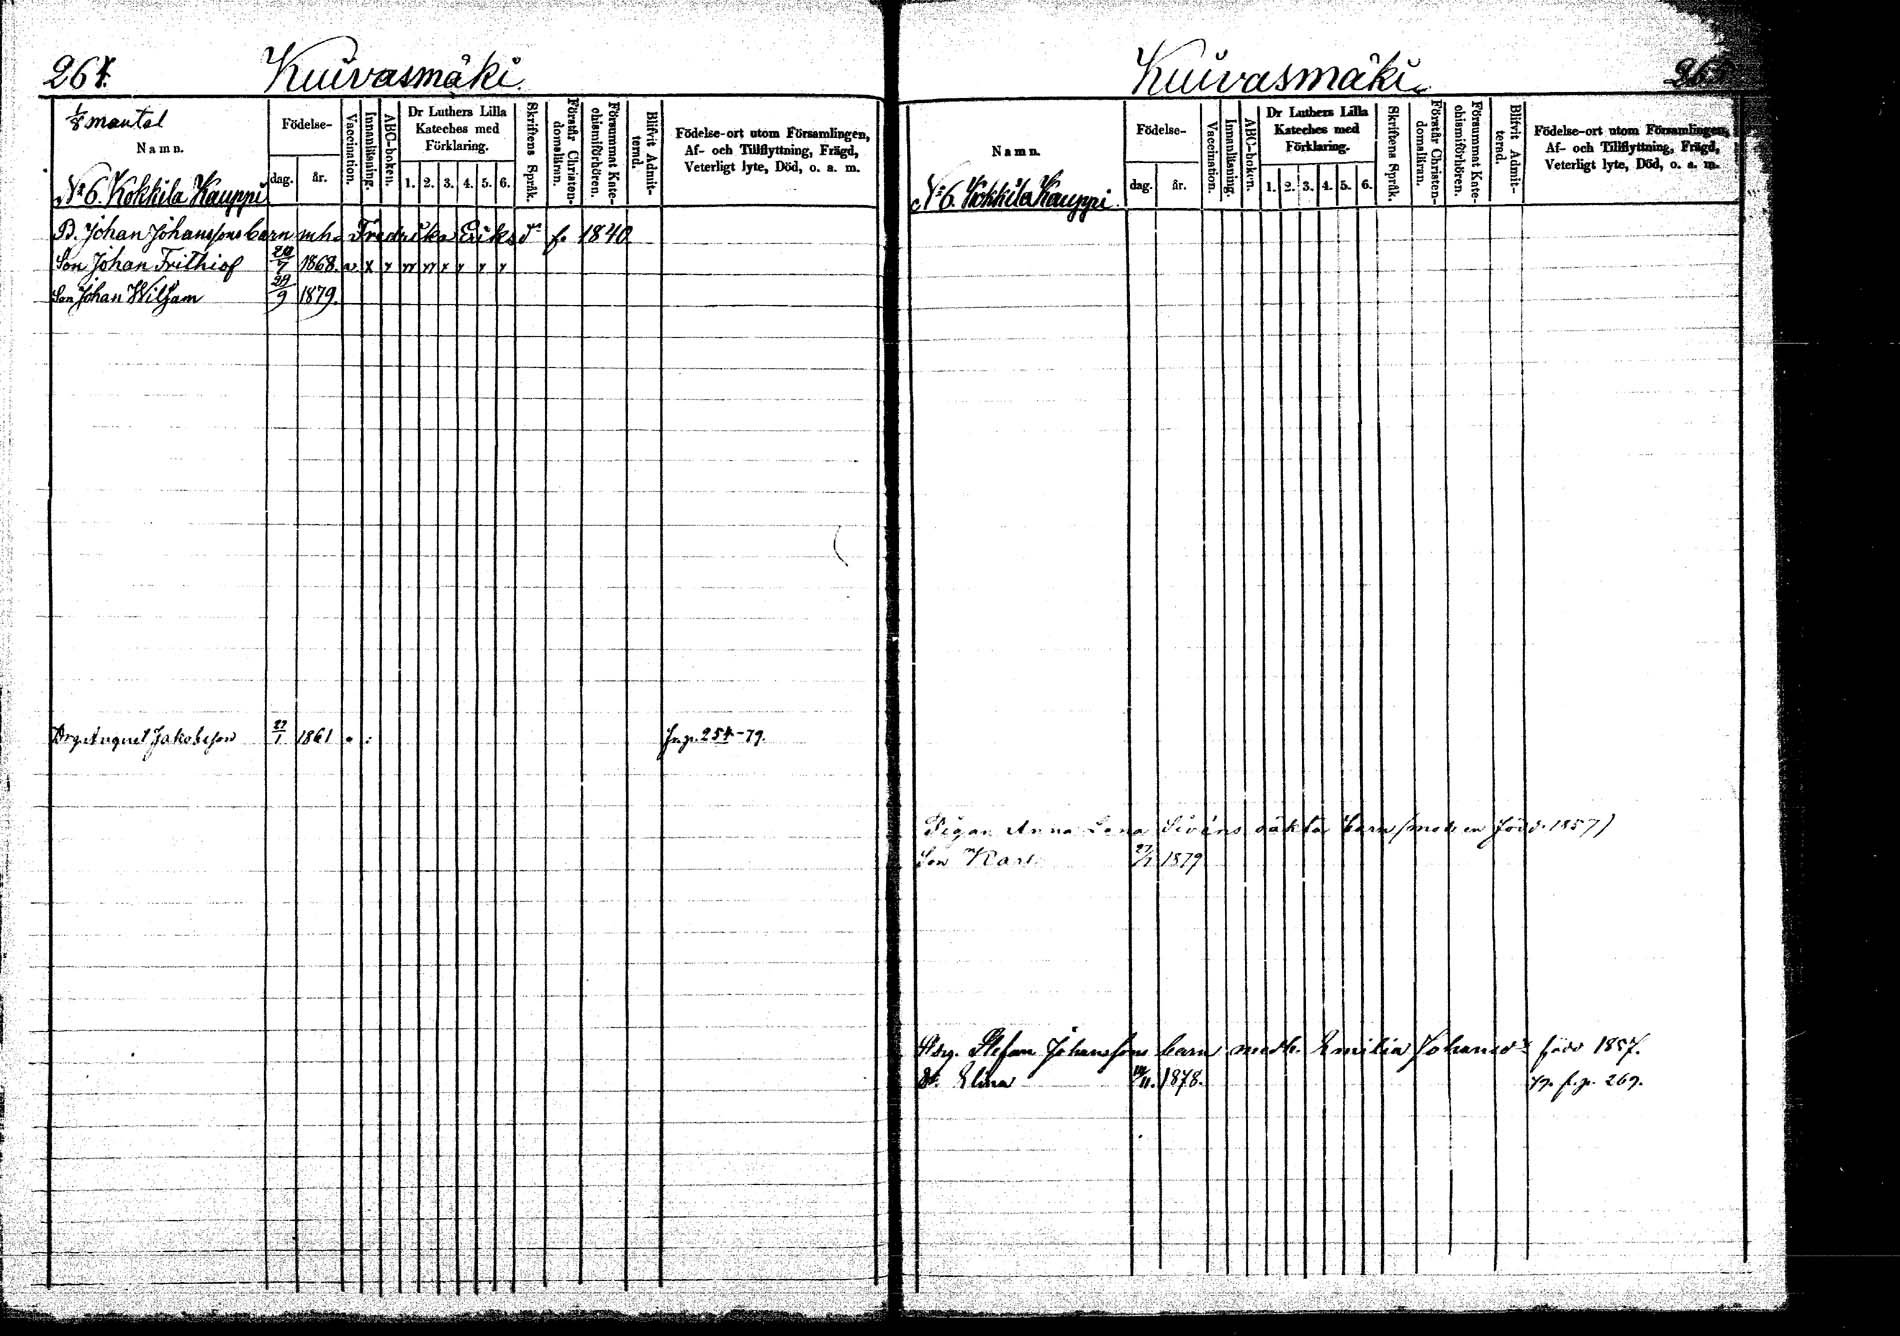 264.
Kuivasmäki.
1/8 mantal
Namn.
No 6. Kokkila Kauppi
Födelse-
dag.
år.
Vaccination.
Innanläsning.
ABC-boken.
Dr Luthers Lilla
Kateches med
Förklaring.
1. 2. 3. 4. 5. 6.
Skriftens Språk.
Förstår Christen-
domsläran.
Försummat Kate-
chismiförhören.
Blifvit Admit-
terad.
Födelse-ort utom Församlingen,
Af- och Tillflyttning, Frägd,
Veterligt lyte, Död, o. s. m.
B. Johan Johanssons barn mh. Fredrika Eriksdr f. 1840
Son Johan Frithiof 20/7 1868.
Son Johan Wiljam 20/9 1879.
Drg. August Jakobsson 27/1 1861 fr. p. 254-79.
Kuivasmäki
265
Namn.
No 6. Kokkila Kauppi.
Födelse-
dag.
år.
Vaccination.
Innanläsning.
ABC-boken.
Dr Luthers Lilla
Kateches med
Förklaring.
1. 2. 3. 4. 5. 6.
Skriftens Språk.
Förstår Christen-
domsläran.
Försummat Kate-
chismiförhören.
Blifvit Admit-
terad.
Födelse-ort utom Församlingen,
Af- och Tillflyttning, Frägd,
Veterligt lyte, Död, o. s. m.
Pigan Anna Lena Sivéns oäkta barn (modren född 1857)
Son Karl 1879
Stefan Johanssons barn medh. Emilia Johansdr född 1857.
Dr. Elina 1878. f. p. 269.